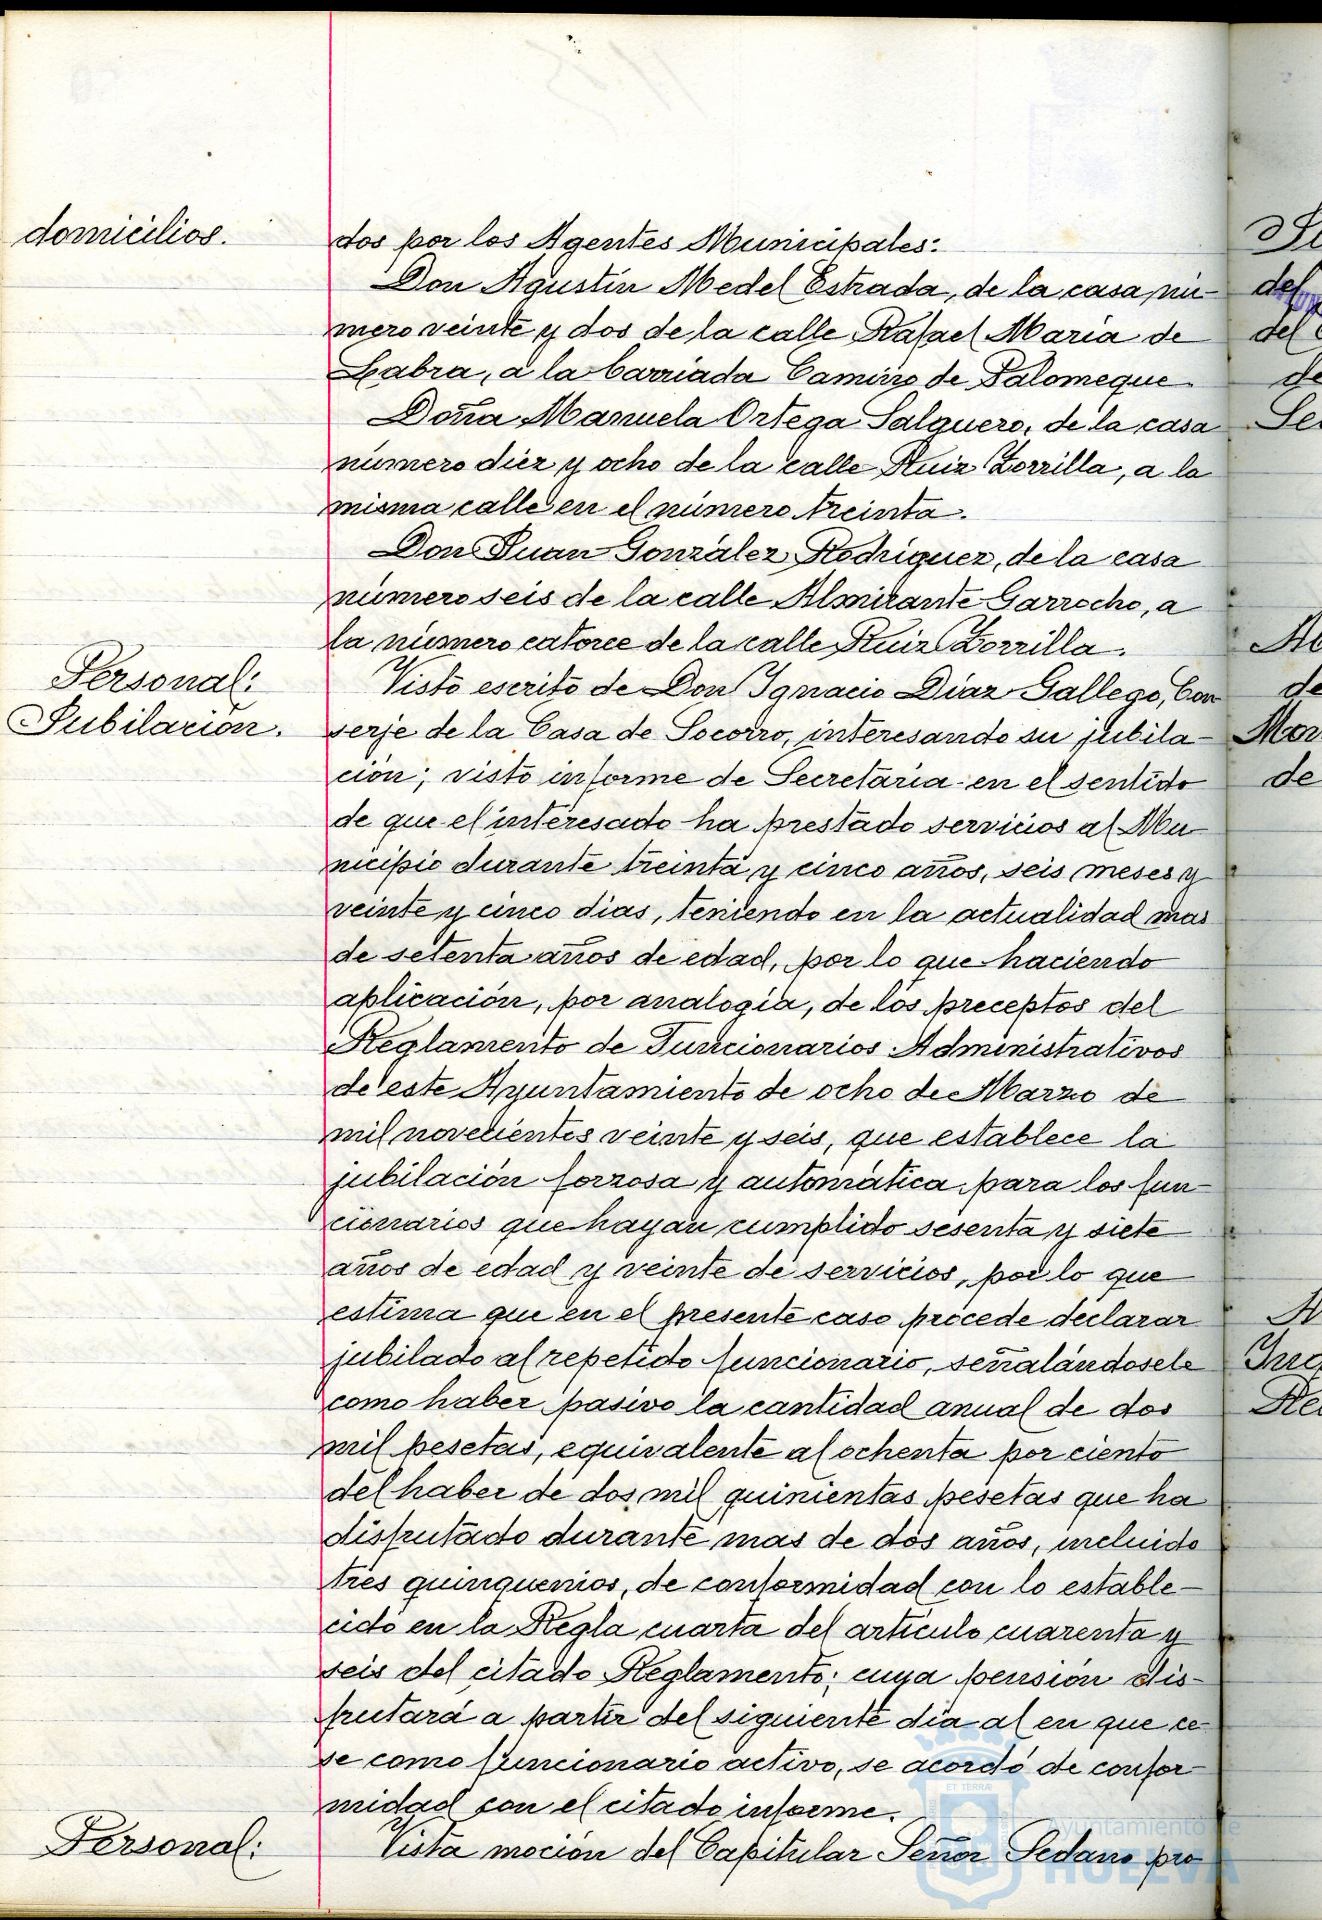 domicilios.
dos por los Agentes Municipales:
Don Agustín Medel Estrada, de la casa nú-
mero veinte y dos de la calle Rafael María de
Labra, a la barriada Camino de Palomeque.
Doña Manuela Ortega Salguero, de la casa
número diez y ocho de la calle Ruiz Zorrilla, a la
misma calle en el número treinta.
Don Juan González Rodríguez, de la casa
número seis de la calle Almirante Garrocho, a
la número catorce de la calle Ruiz Zorrilla.
Personal:
Jubilación.
Visto escrito de Don Ignacio Díaz Gallego, Con
serje de la Casa de Socorro, interesando su jubila-
ción; visto informe de Secretaría en el sentido
de que el interesado ha prestado servicios al Mu
nicipio durante treinta y cinco años, seis meses y
veinte y cinco dias, teniendo en la actualidad mas
de setenta años de edad, por lo que haciendo
aplicación, por analogía, de los preceptos del
Reglamento de Funcionarios Administrativos
de este Ayuntamiento de ocho de Marzo de
mil novecientos veinte y seis, que establece la
jubilación forzosa y automática para los fun-
cionarios que hayan cumplido sesenta y siete
años de edad y veinte de servicios, por lo que
estima que en el presente caso procede declarar
jubilado al repetido funcionario, señalándosele
como haber pasivo la cantidad anual de dos
mil pesetas, equivalente al ochenta por ciento
del haber de dos mil quinientas pesetas que ha
disfrutado durante mas de dos años, incluido
tres quinquenios, de conformidad con lo estable-
cido en la Regla cuarta del artículo cuarenta y
seis del citado Reglamento; cuya pensión dis-
frutará a partir del siguiente día al en que ce-
se como funcionario activo, se acordó de confor-
midad con el citado informe.
Personal:
Vista moción del Capitular Señor Sedano pro
Ayuntamiento de
HUELVA